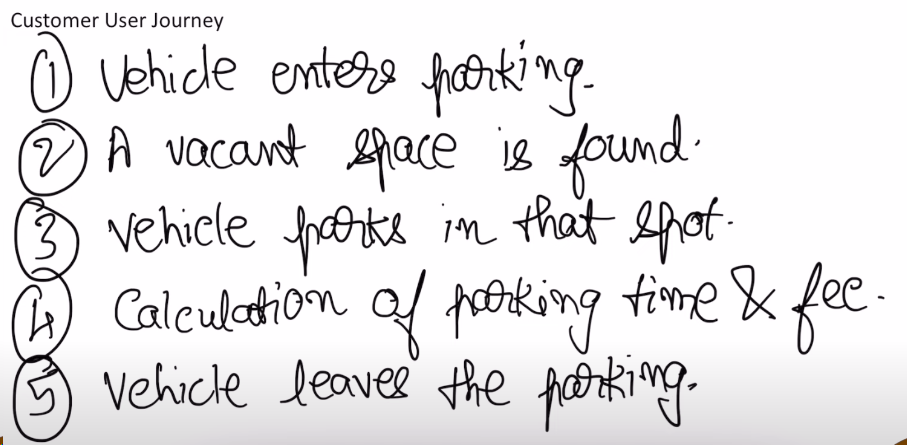 Customer User Journey
① Vehicle enters parking.
② A vacant space is found.
③ Vehicle parks in that spot.
④ Calculation of parking time & fee.
⑤ Vehicle leaves the parking.